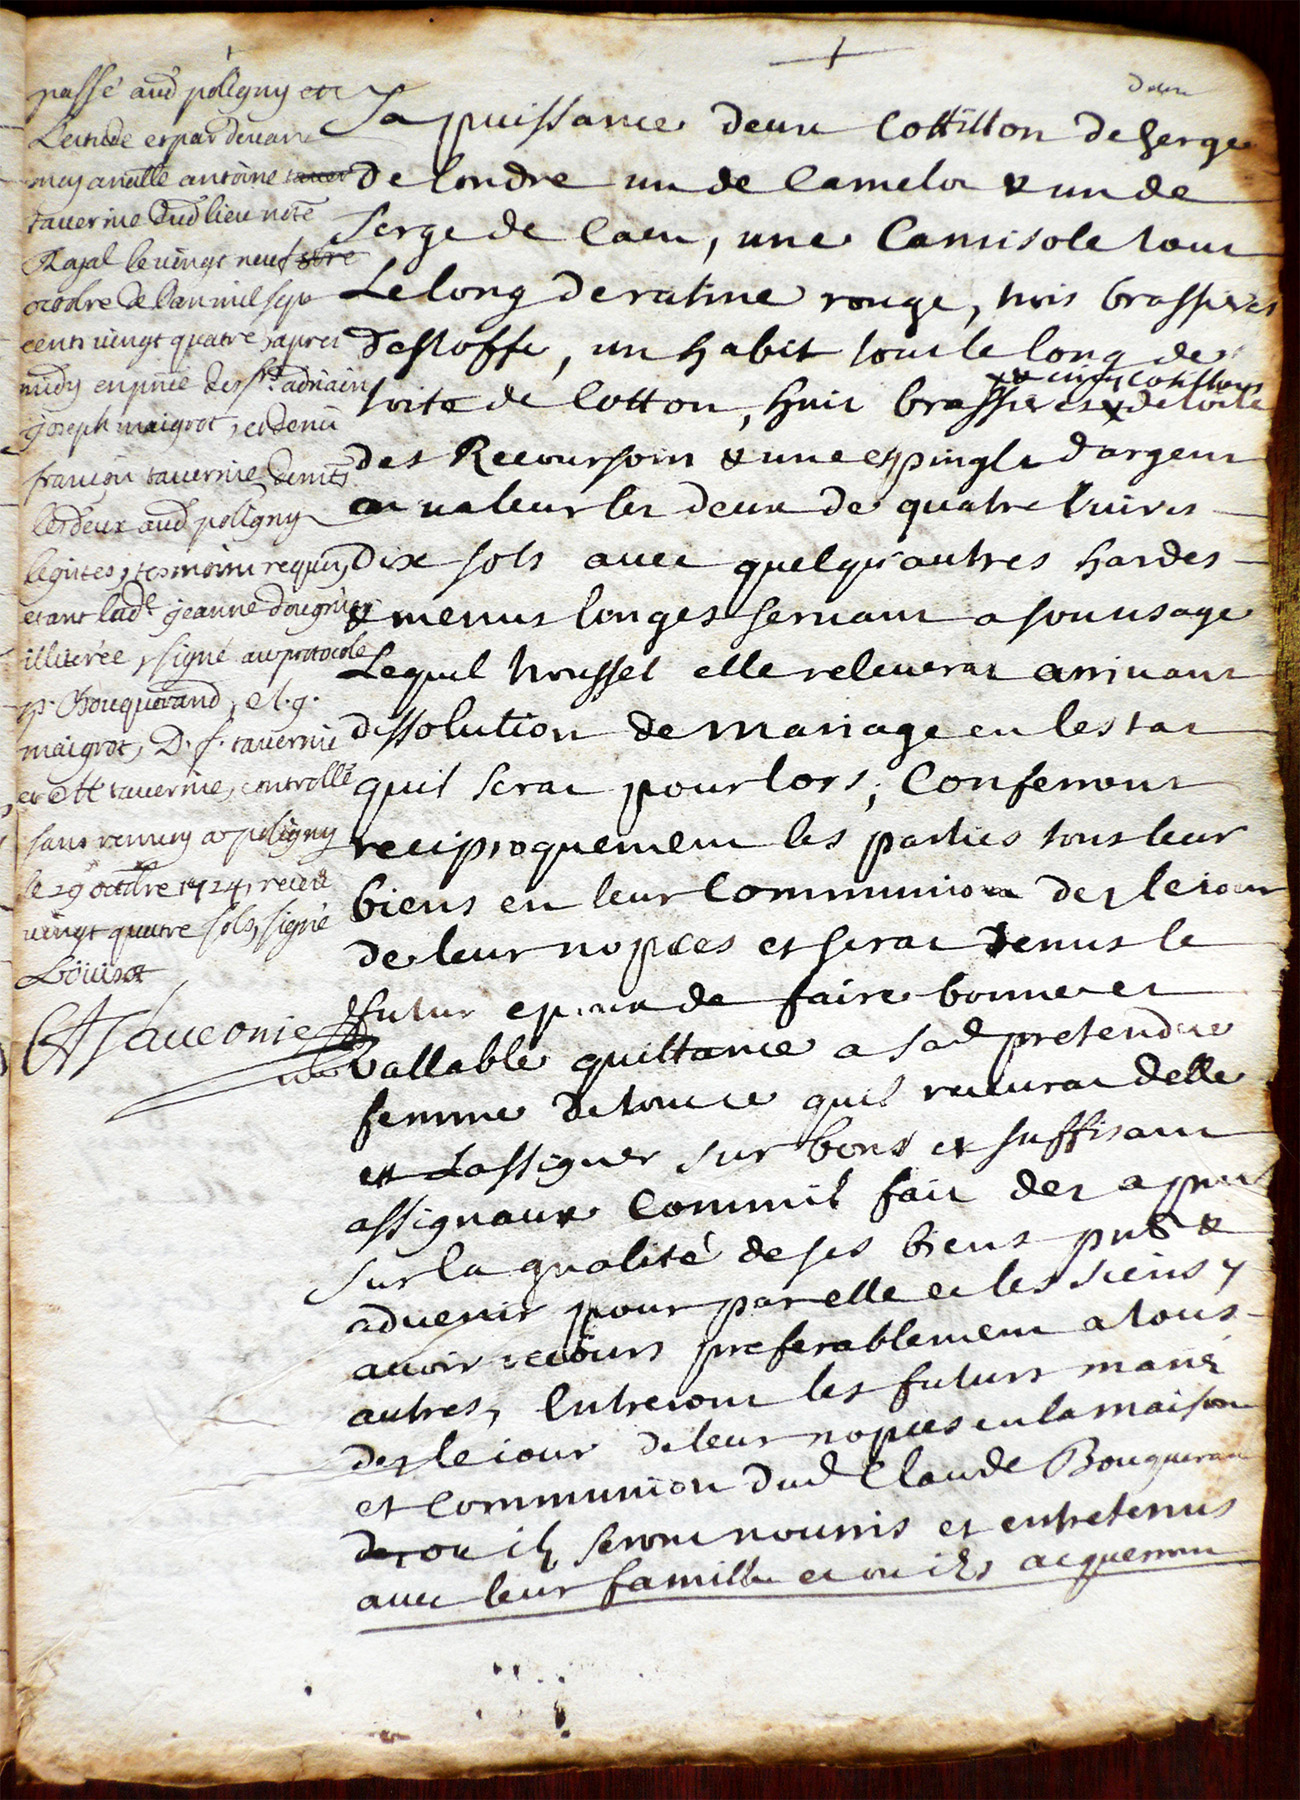 passé aud poligny en
Letude et par devant
moy anatlle antoine
tavernie dud lieu note
Rajal le vingt neuf
octobre de l an mil sept
cents vingt quatre, apres
midy en pnce des srs adriain
joseph maigrot, et denis
françois tavernie demts
les deux aud poligny
tesmoins requis,
etant lade jeanne
illiterée, signé au protocole
p. Bouquerand, et. g.
maigrot, D. f. tavernie
et Att tavernie, controllé
sans renvoy a poligny
le 29 octobre 1724, receu
vingt quatre sols, signé
Att Tavernie
+
Sa puissance deux Cottillon de serge
de londre un de Camelot & un de
Serge de Caen, une Camisole tout
Le long de ratine rouge, trois brassieres
destoffe, un habit tout le long de
toite de Cotton, huit brassieres x de toile
xx cinq cotillons
des & une espingle dargent
en valeur les deux de quatre livres
Dix sols avec quelqu'autres hardes
& menus linges servant a son usage
Lequel troussel elle releverat arrivant
dissolution de mariage en lestat
quil serat pour lors, Conferront
reciproquement les parties tous leur
biens en leur Communion des le iour
de leur nopces et serat tenus le
futur epoux de faire bonne et
vallable quittance a sad pretendue
femme de tout ce quil recevrat delle
et Lassigner sur bons et suffisant
assignaux Comm'il fait des a pnt
sur la qualité de ses biens pnts &
advenir pour par elle et les siens y
avoir recours preferablement a tous
autres, Entreront les futurs mariés
des le iour de leur nopces en la maison
et Communion dud Claude Bouquerand
ou ils seront nourris et entretenus
avec leur famille et ou ils acquerront